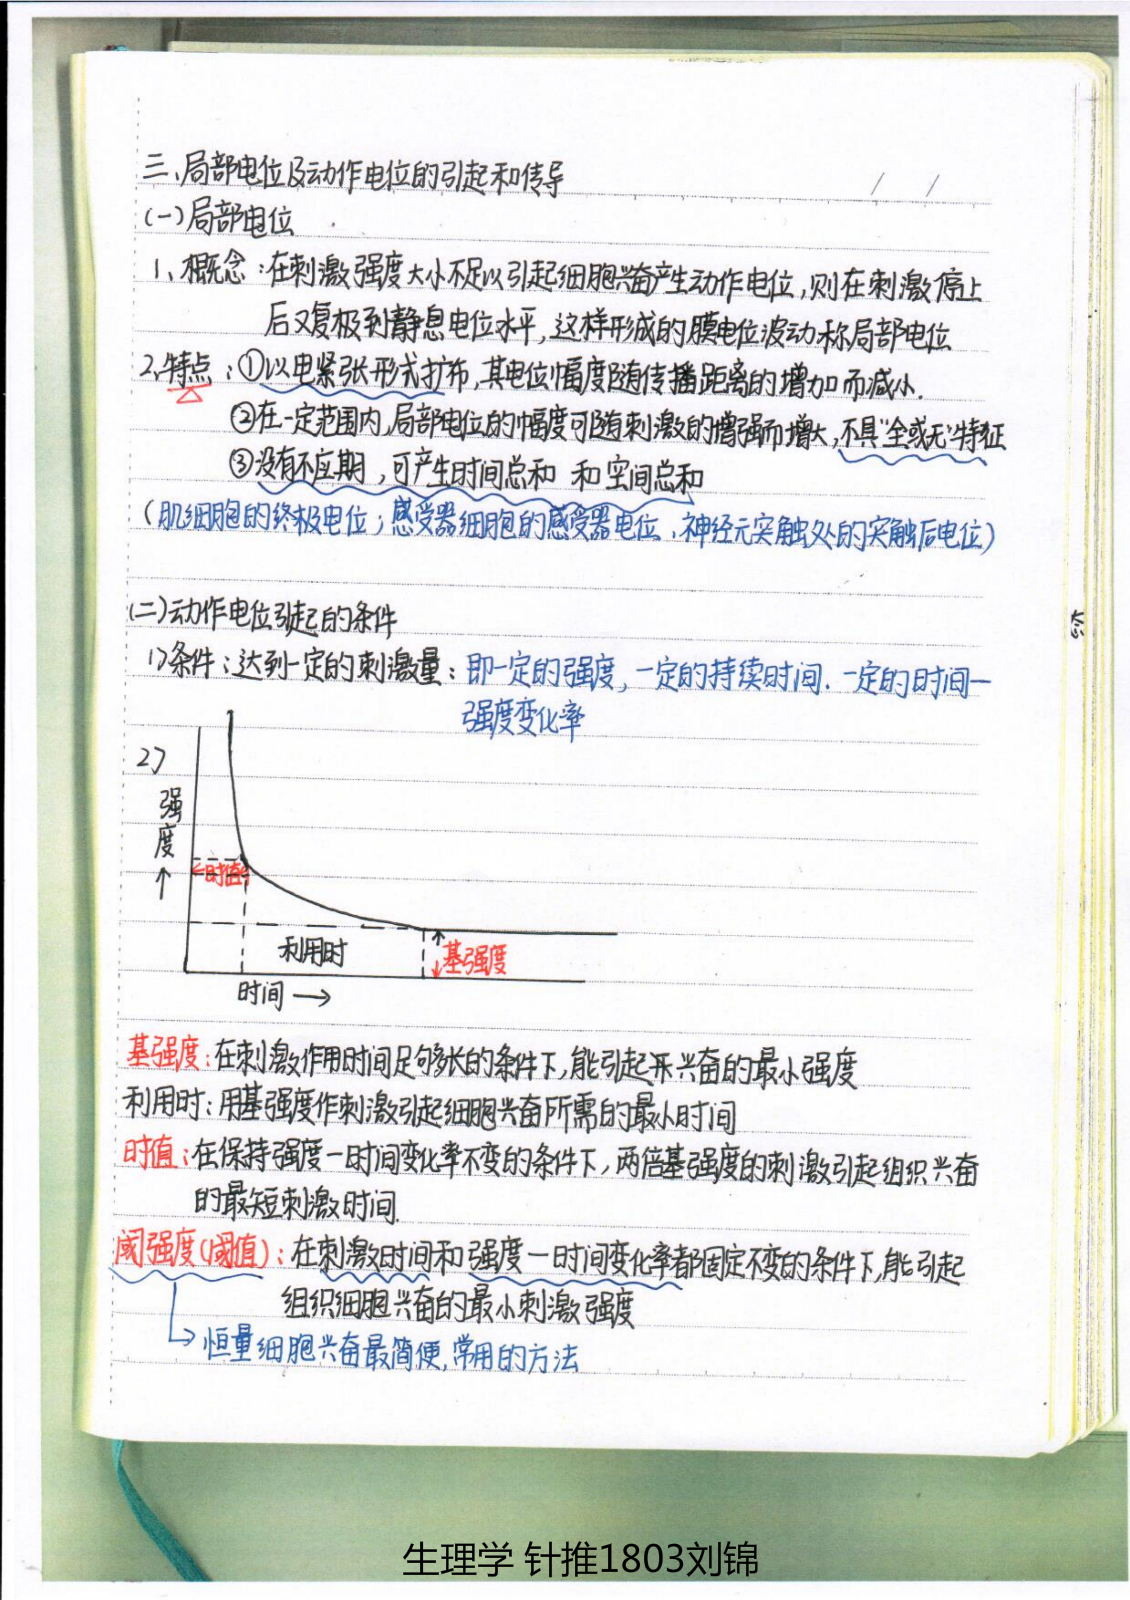 三、局部电位及动作电位的引起和传导
(一)局部电位
1、概念:在刺激强度大小不足以引起细胞兴奋产生动作电位,则在刺激停止
后又复极到静息电位水平,这样形成的膜电位波动称局部电位
2、特点:①以电紧张形式扩布,其电位幅度随传播距离的增加而减小.
②在一定范围内,局部电位的幅度可随刺激的增强而增大,不具"全或无"特征
③没有不应期,可产生时间总和 和空间总和
(肌细胞的终极电位;感受器细胞的感受器电位、神经元突触处的突触后电位)
(二)动作电位引起的条件
1)条件:达到一定的刺激量:即一定的强度,一定的持续时间.一定的时间—
强度变化率
2)
强度
↑
←时值
利用时
基强度
时间→
基强度:在刺激作用时间足够长的条件下,能引起兴奋的最小强度
利用时:用基强度作刺激引起细胞兴奋所需的最小时间
时值:在保持强度—时间变化率不变的条件下,两倍基强度的刺激引起组织兴奋
的最短刺激时间.
阈强度(阈值):在刺激时间和强度—时间变化率都固定不变的条件下,能引起
组织细胞兴奋的最小刺激强度
恒量细胞兴奋最简便,常用的方法
生理学 针推1803刘锦